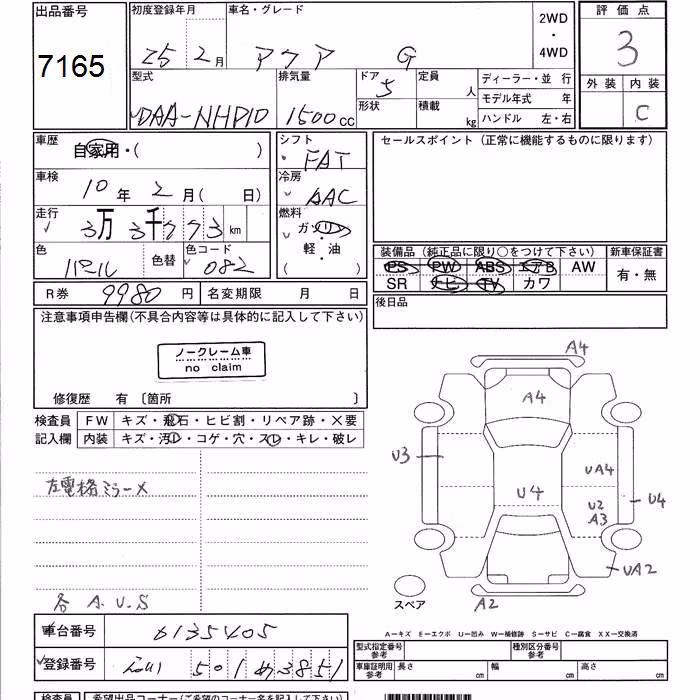 出品番号
7165
初度登録年月
25 2月
車名・グレード
アクア G
2WD
・
4WD
評価点
3
外装 内装
C
型式
DAA-NHP10
排気量
1500cc
ドア 5
形状
定員 人
積載 kg
ディーラー・並行
モデル年式 年
ハンドル 左・右
車歴
自家用・( )
車検
10年 2月( 日)
走行
3万 3千773km
色
パール
色替
色コード
082
シフト
FAT
冷房
AAC
燃料
ガソリン
軽・油
( )
セールスポイント(正常に機能するものに限ります)
装備品(純正品に限り○をつけて下さい)
PS PW ABS エアB AW
SR ナビ TV カワ
新車保証書
有・無
R券 9980円
名変期限 月 日
後日品
注意事項申告欄(不具合内容等は具体的に記入して下さい)
ノークレーム車
no claim
修復歴 有 〔箇所 〕
検査員
記入欄
FW キズ・飛石・ヒビ割・リペア跡・X要
内装 キズ・汚レ・コゲ・穴・スレ・キレ・破レ
左電格ミラーX
各A.U.S
A4
A4
U3
UA4
U4
U2
A3
U4
UA2
A2
スペア
A-キズ E-エクボ U-凹み W-補修跡 S-サビ C-腐食 XX-交換済
車台番号
6135405
登録番号
501 3851
型式指定番号
参考
種別区分番号
参考
車庫証明用
参考
長さ cm
幅 cm
高さ cm
検査員
希望出品コーナー(ご希望のコーナー名を記入下さい)